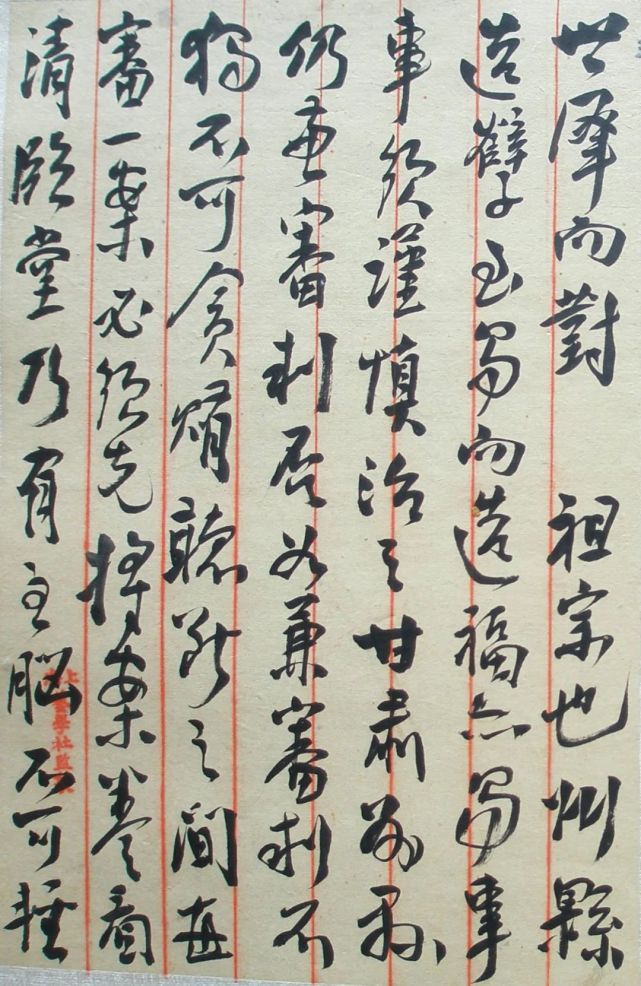 世澤而對 祖宗也州縣
造孽至易而造福亦易事
事須謹慎治之甘肅縣
仍兼審判否如兼審判不
獨不可貪賄聽斷之間每
審一案必須先將案卷看
清臨堂乃有主腦不可輕